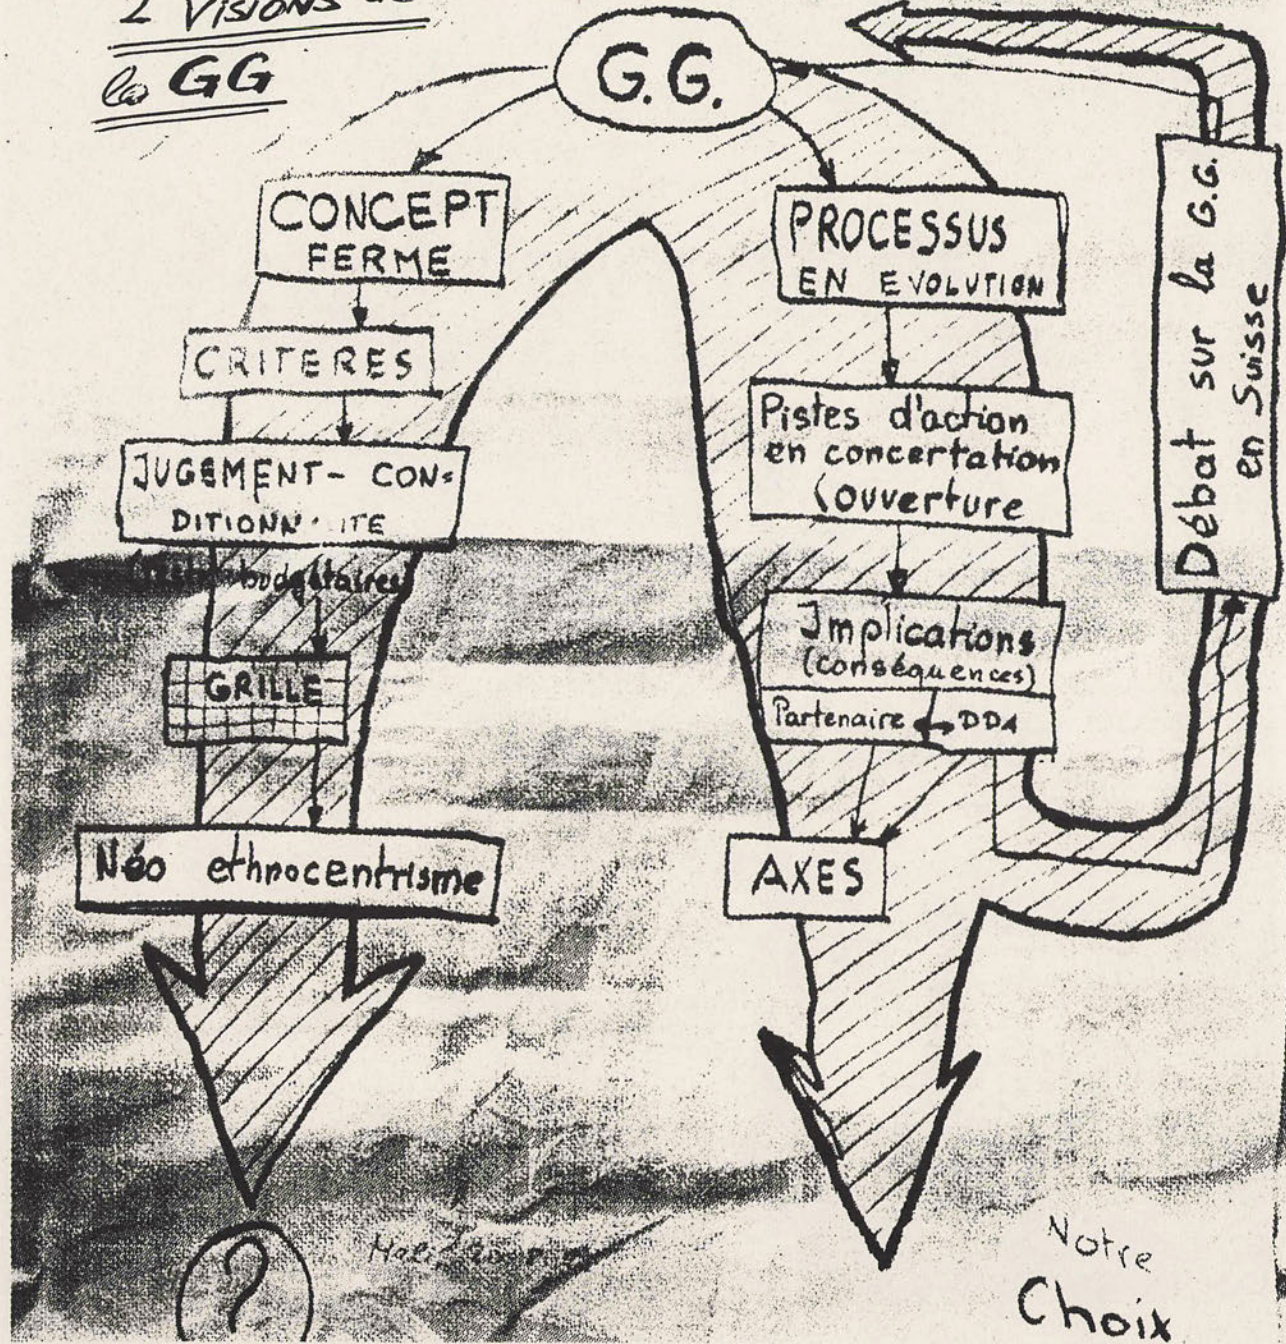 2 VISIONS de
la GG
G.G.
CONCEPT
FERME
CRITERES
JUGEMENT - CON-
DITIONN ITE
budgétaires)
GRILLE
Néo ethnocentrisme
?
PROCESSUS
EN EVOLUTION
Pistes d'action
en concertation
(ouverture
Implications
(conséquences)
Partenaire ↔ DDA
AXES
Débat sur la G.G.
en Suisse
Notre
Choix